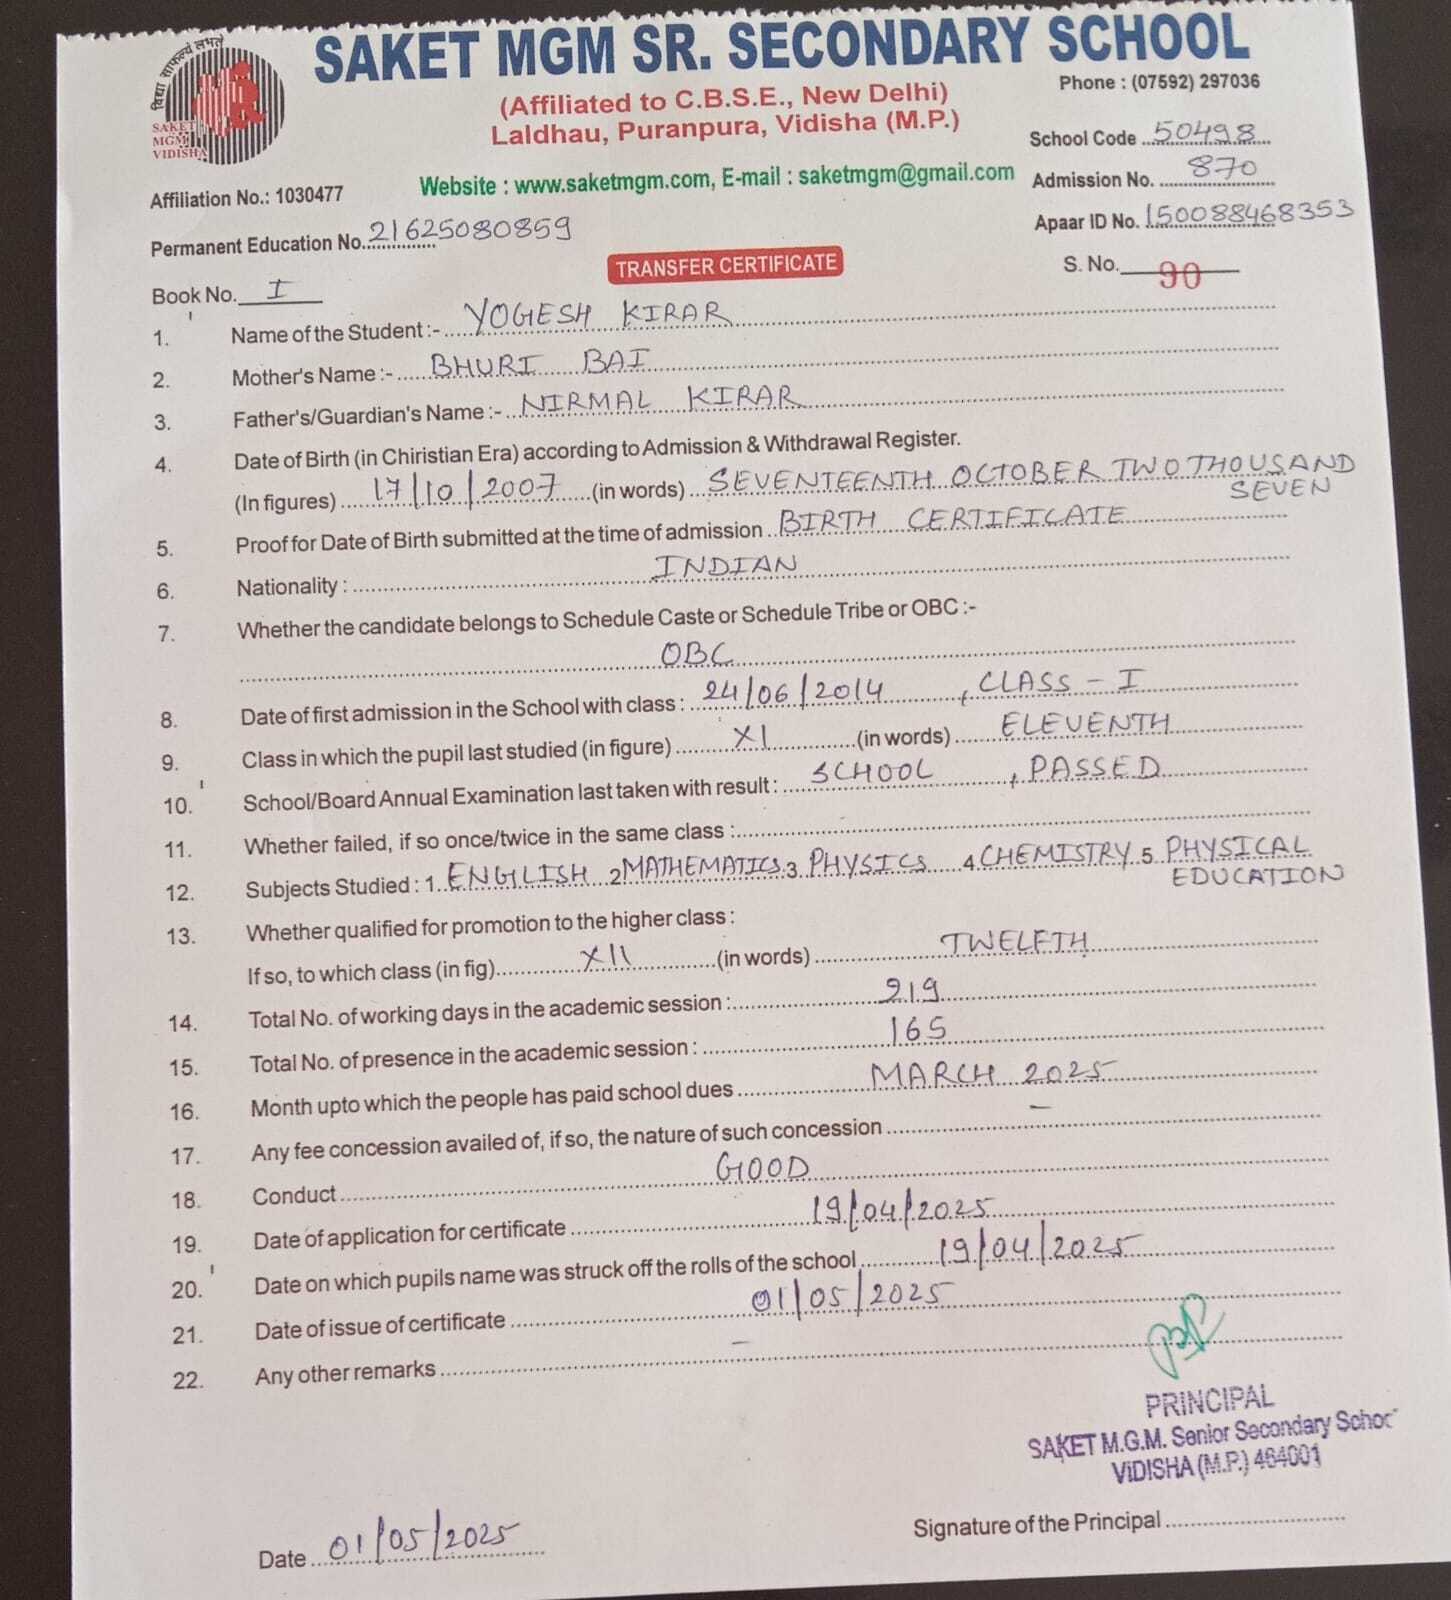 विद्या साफल्यं लभते
SAKET
MGM
VIDISHA
SAKET MGM SR. SECONDARY SCHOOL
(Affiliated to C.B.S.E., New Delhi)
Laldhau, Puranpura, Vidisha (M.P.)
Phone : (07592) 297036
School Code 50498
Affiliation No.: 1030477
Website : www.saketmgm.com, E-mail : saketmgm@gmail.com
Admission No. 870
Permanent Education No. 21625080859
Apaar ID No. 150088468353
TRANSFER CERTIFICATE
Book No. I
S. No. 90
1. Name of the Student :- YOGESH KIRAR
2. Mother's Name :- BHURI BAI
3. Father's/Guardian's Name :- NIRMAL KIRAR
4. Date of Birth (in Chiristian Era) according to Admission & Withdrawal Register.
(In figures) 17/10/2007 (in words) SEVENTEENTH OCTOBER TWO THOUSAND
SEVEN
5. Proof for Date of Birth submitted at the time of admission BIRTH CERTIFICATE
6. Nationality : INDIAN
7. Whether the candidate belongs to Schedule Caste or Schedule Tribe or OBC :-
OBC
8. Date of first admission in the School with class : 24/06/2014, CLASS - I
9. Class in which the pupil last studied (in figure) XI (in words) ELEVENTH
10. School/Board Annual Examination last taken with result : SCHOOL, PASSED
11. Whether failed, if so once/twice in the same class :
12. Subjects Studied : 1. ENGLISH 2 MATHEMATICS 3 PHYSICS 4 CHEMISTRY 5 PHYSICAL
EDUCATION
13. Whether qualified for promotion to the higher class :
If so, to which class (in fig) XII (in words) TWELFTH
14. Total No. of working days in the academic session : 219
15. Total No. of presence in the academic session : 165
16. Month upto which the people has paid school dues MARCH 2025
17. Any fee concession availed of, if so, the nature of such concession —
18. Conduct GOOD
19. Date of application for certificate 19/04/2025
20. Date on which pupils name was struck off the rolls of the school 19/04/2025
21. Date of issue of certificate 01/05/2025
22. Any other remarks —
PRINCIPAL
SAKET M.G.M. Senior Secondary School
VIDISHA (M.P.) 464001
Signature of the Principal
Date 01/05/2025